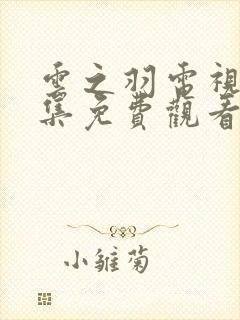 雲之羽電視
集免費觀看
小雛菊